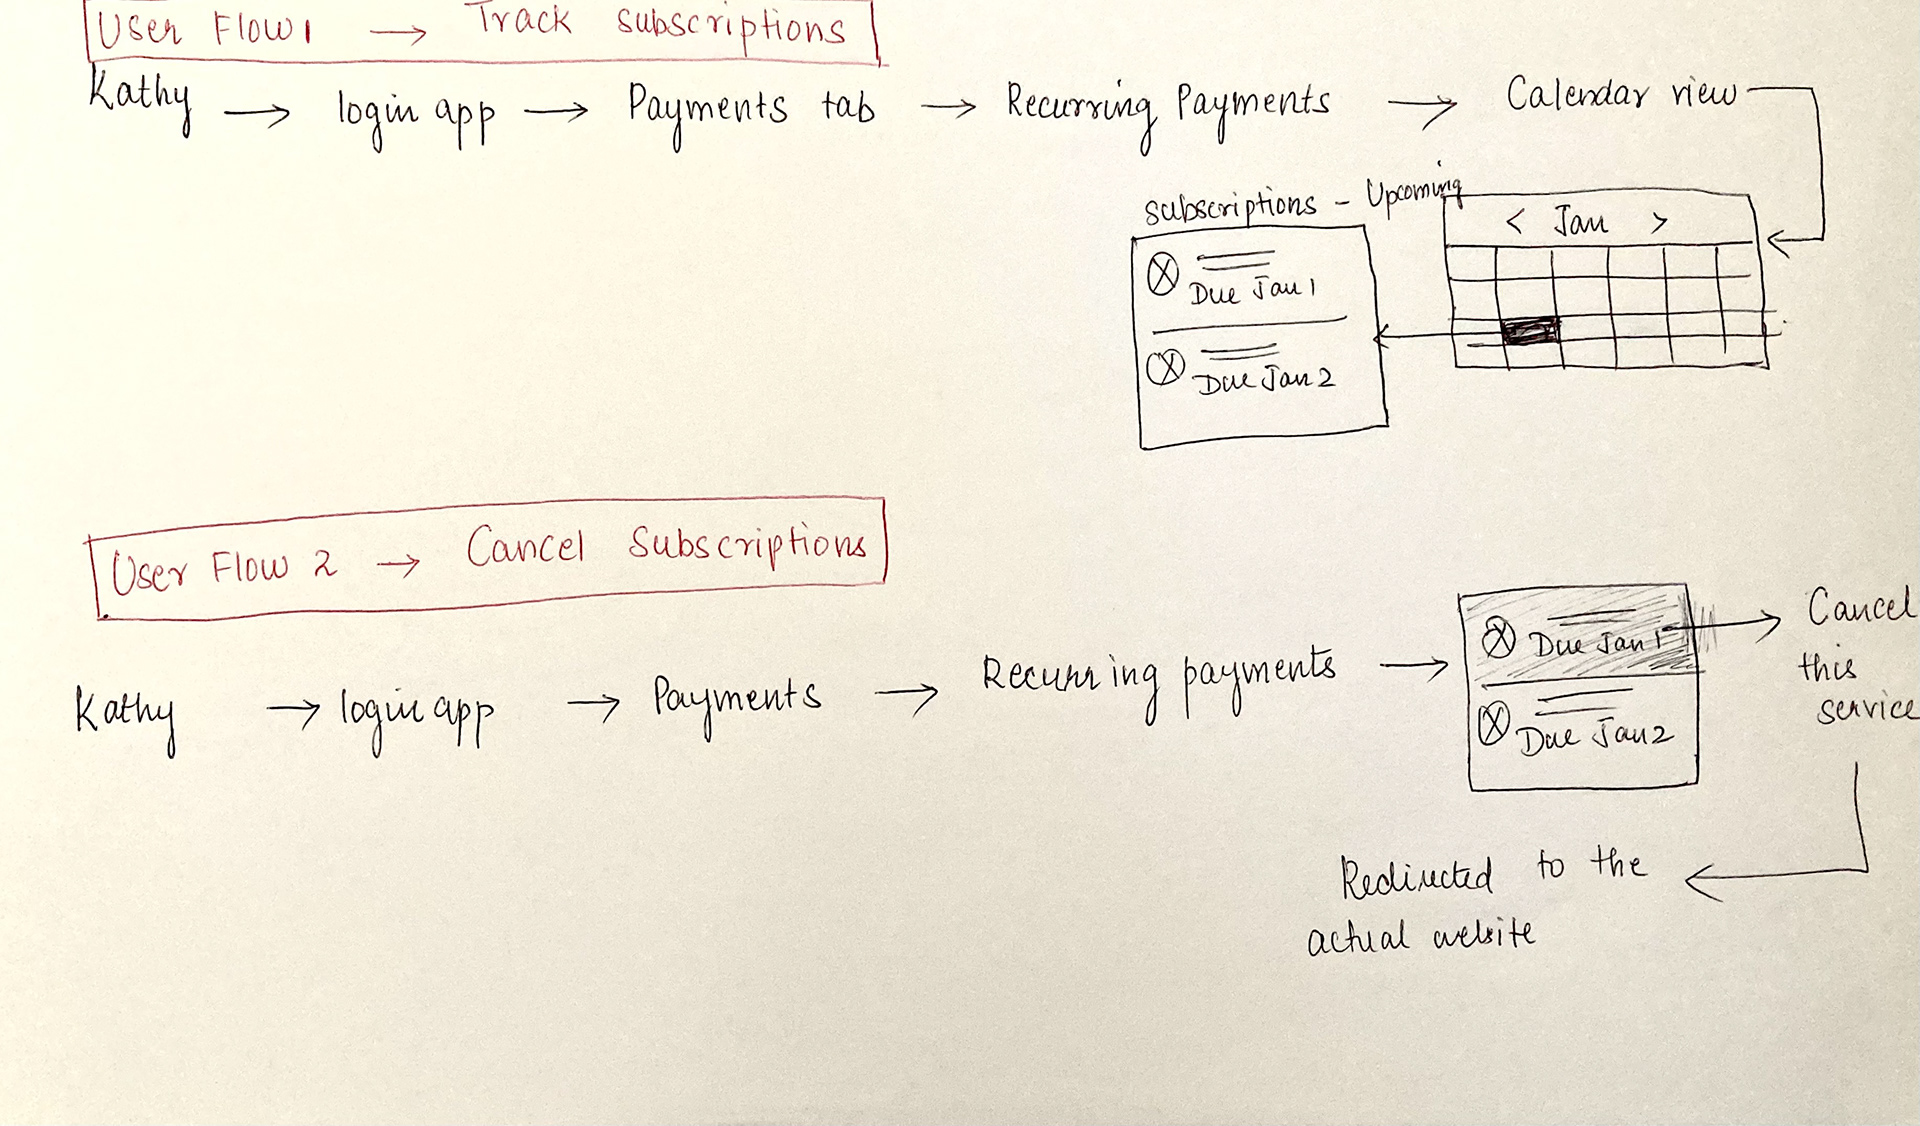 User Flow 1 → Track subscriptions
Kathy → login app → Payments tab → Recurring Payments → Calendar view
subscriptions - Upcoming
< Jan >
Due Jan 1
Due Jan 2
User Flow 2 → Cancel Subscriptions
Kathy → login app → Payments → Recurring payments →
Due Jan 1
Due Jan 2
Cancel
this
service
Redirected to the
actual website